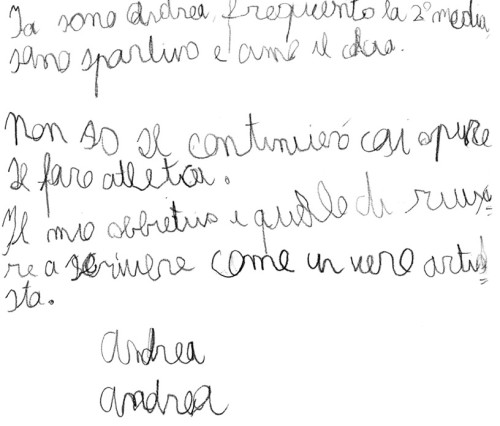 Io sono Andrea, frequento la 2° media,
sono sportivo e amo il
Non so se continuerò così opure
se farò atletica.
Il mio obbietivo è quello di riusi
re a scrivere come un vero arti
sta.
Andrea
Andrea